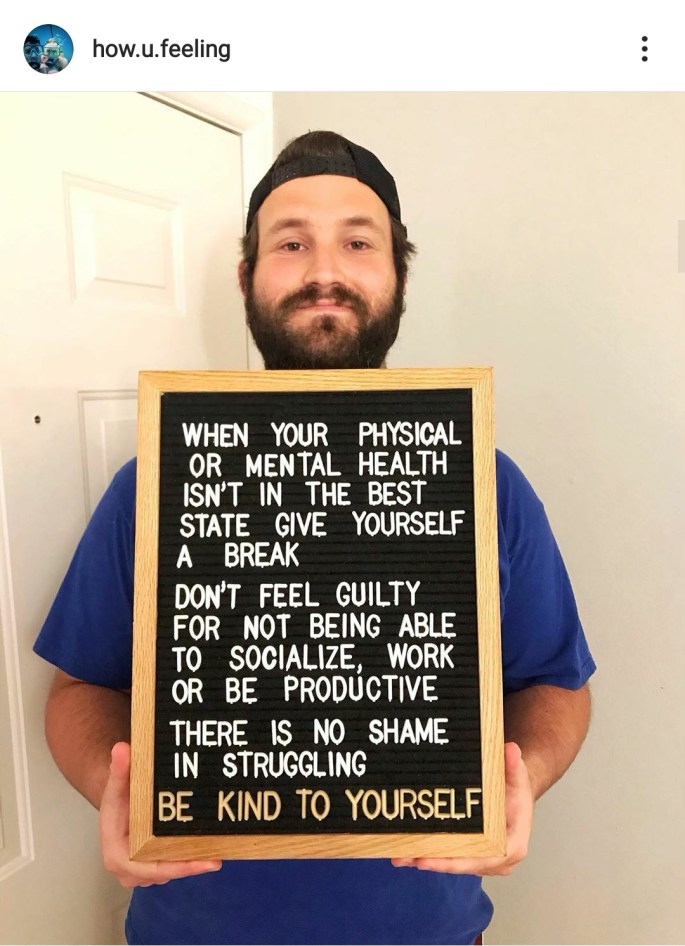 how.u.feeling
WHEN YOUR PHYSICAL
OR MENTAL HEALTH
ISN'T IN THE BEST
STATE GIVE YOURSELF
A BREAK
DON'T FEEL GUILTY
FOR NOT BEING ABLE
TO SOCIALIZE, WORK
OR BE PRODUCTIVE
THERE IS NO SHAME
IN STRUGGLING
BE KIND TO YOURSELF